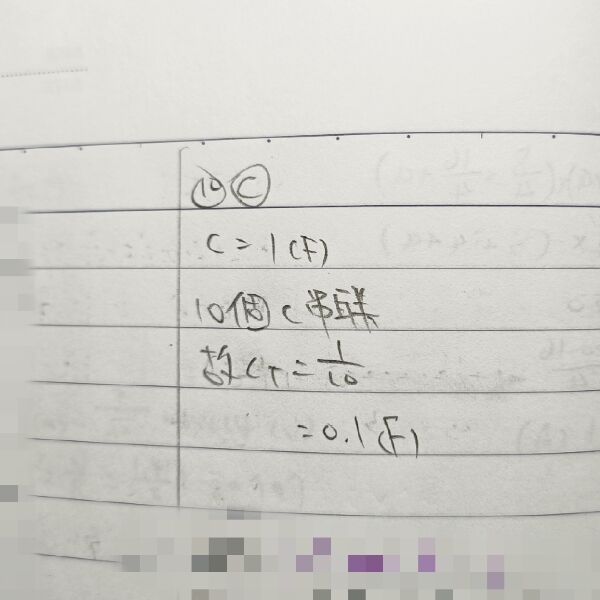 ⑩ Ⓒ
C = 1 (F)
10個 C 串联
故 C_T = 1/10
= 0.1 (F)